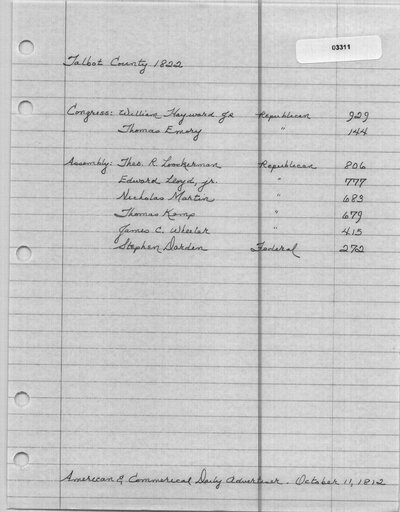 03311
Talbot County 1822
Congress: William Hayward Jr Republican 929
Thomas Emory " 144
Assembly: Theo. R. Loockerman Republican 806
Edward Lloyd, jr. " 777
Nicholas Martin " 683
Thomas Kemp " 679
James C. Wheeler " 415
Stephen Darden Federal 272
American & Commerical Daily Advertiser. October 11, 1812